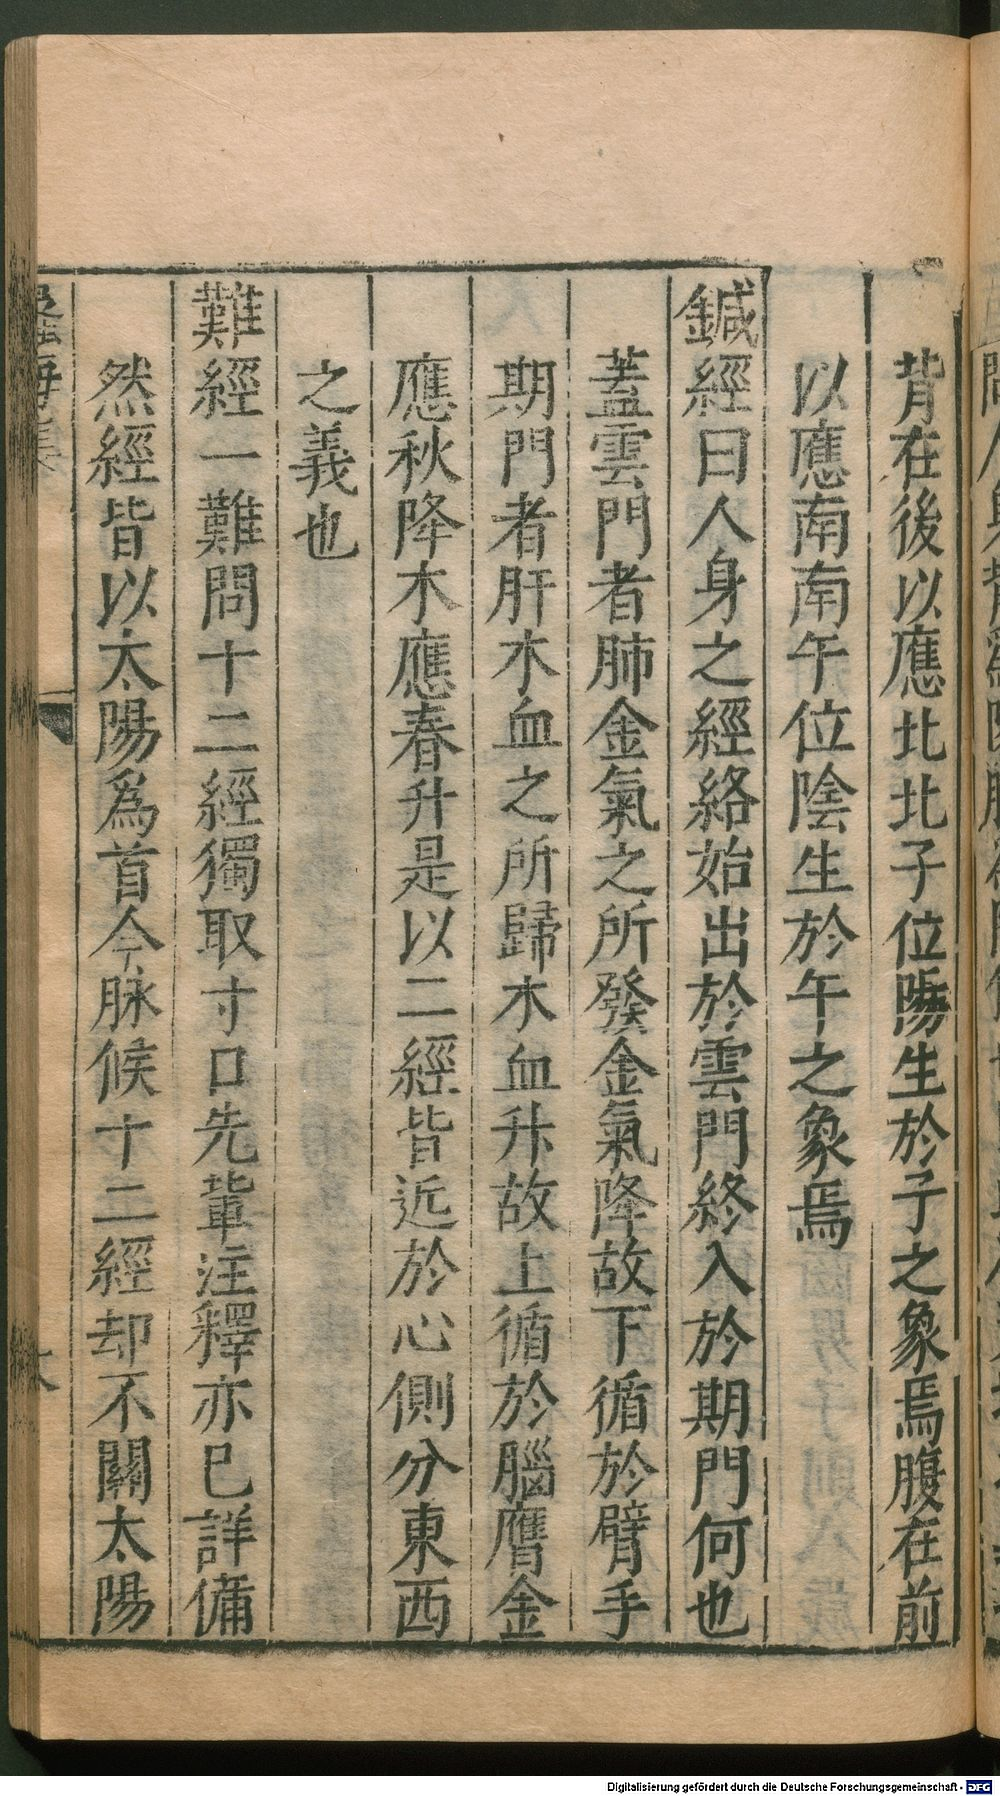 背在後以應北北子位陽生於子之象焉腹在前
以應南南午位陰生於午之象焉
鍼經曰人身之經絡始出於雲門終入於期門何也
蓋雲門者肺金氣之所發金氣降故下循於臂手
期門者肝木血之所歸木血升故上循於腦膺金
應秋降木應春升是以二經皆近於心側分東西
之義也
難經一難問十二經獨取寸口先輩注釋亦已詳備
然經皆以太陽爲首今脉候十二經却不關太陽
Digitalisierung gefördert durch die Deutsche Forschungsgemeinschaft - DFG